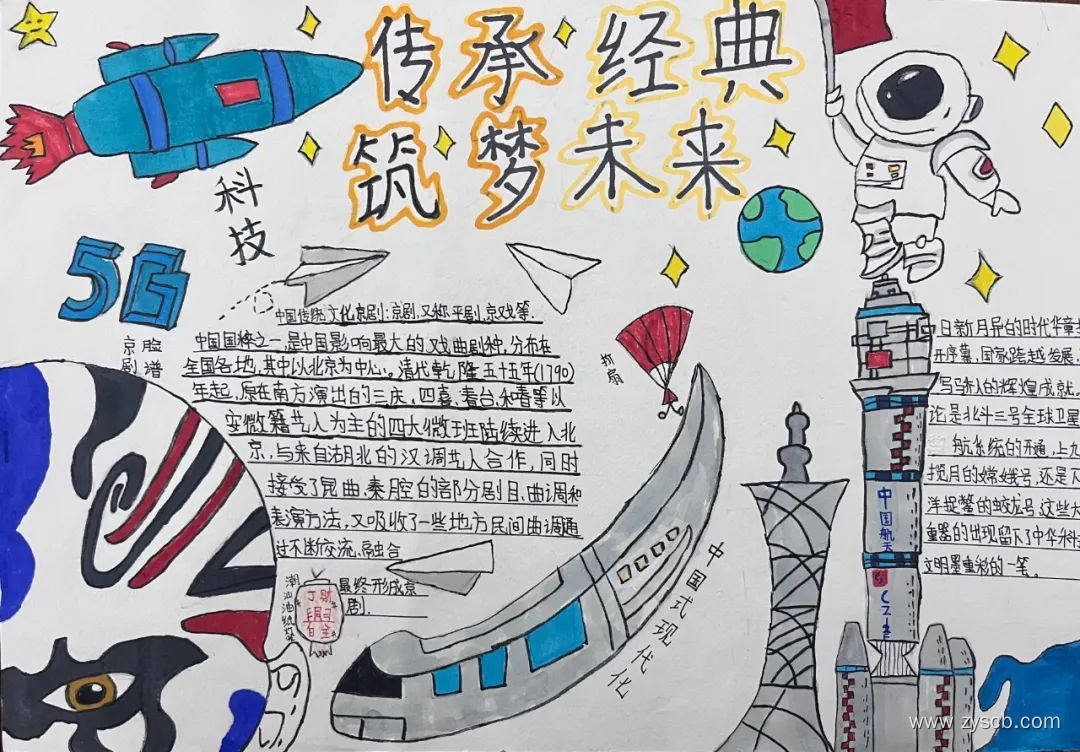 传承经典
筑梦未来
科技
5G
京剧
脸谱
中国传统文化京剧:京剧,又称平剧,京戏等.
中国国粹之一,是中国影响最大的戏曲剧种,分布在
全国各地,其中以北京为中心.清代乾隆五十五年(1790)
年起,原在南方演出的三庆,四喜,春台,和春等以
安徽籍艺人为主的四大徽班陆续进入北
京,与来自湖北的汉调艺人合作,同时
接受了昆曲,秦腔的部分剧目,曲调和
表演方法,又吸收了一些地方民间曲调通
过不断交流,融合
最终形成京
剧.
折扇
潮汕油纸
中国式现代化
日新月异的时代华章
开序幕,国家跨越发展,
写骄人的辉煌成就.
论是北斗三号全球卫星
航系统的开通,上九
揽月的嫦娥号,还是
洋捉鳖的蛟龙号,这些大
重器的出现留下了中华科
文明墨重彩的一笔。
中国航天
www.zyscb.com